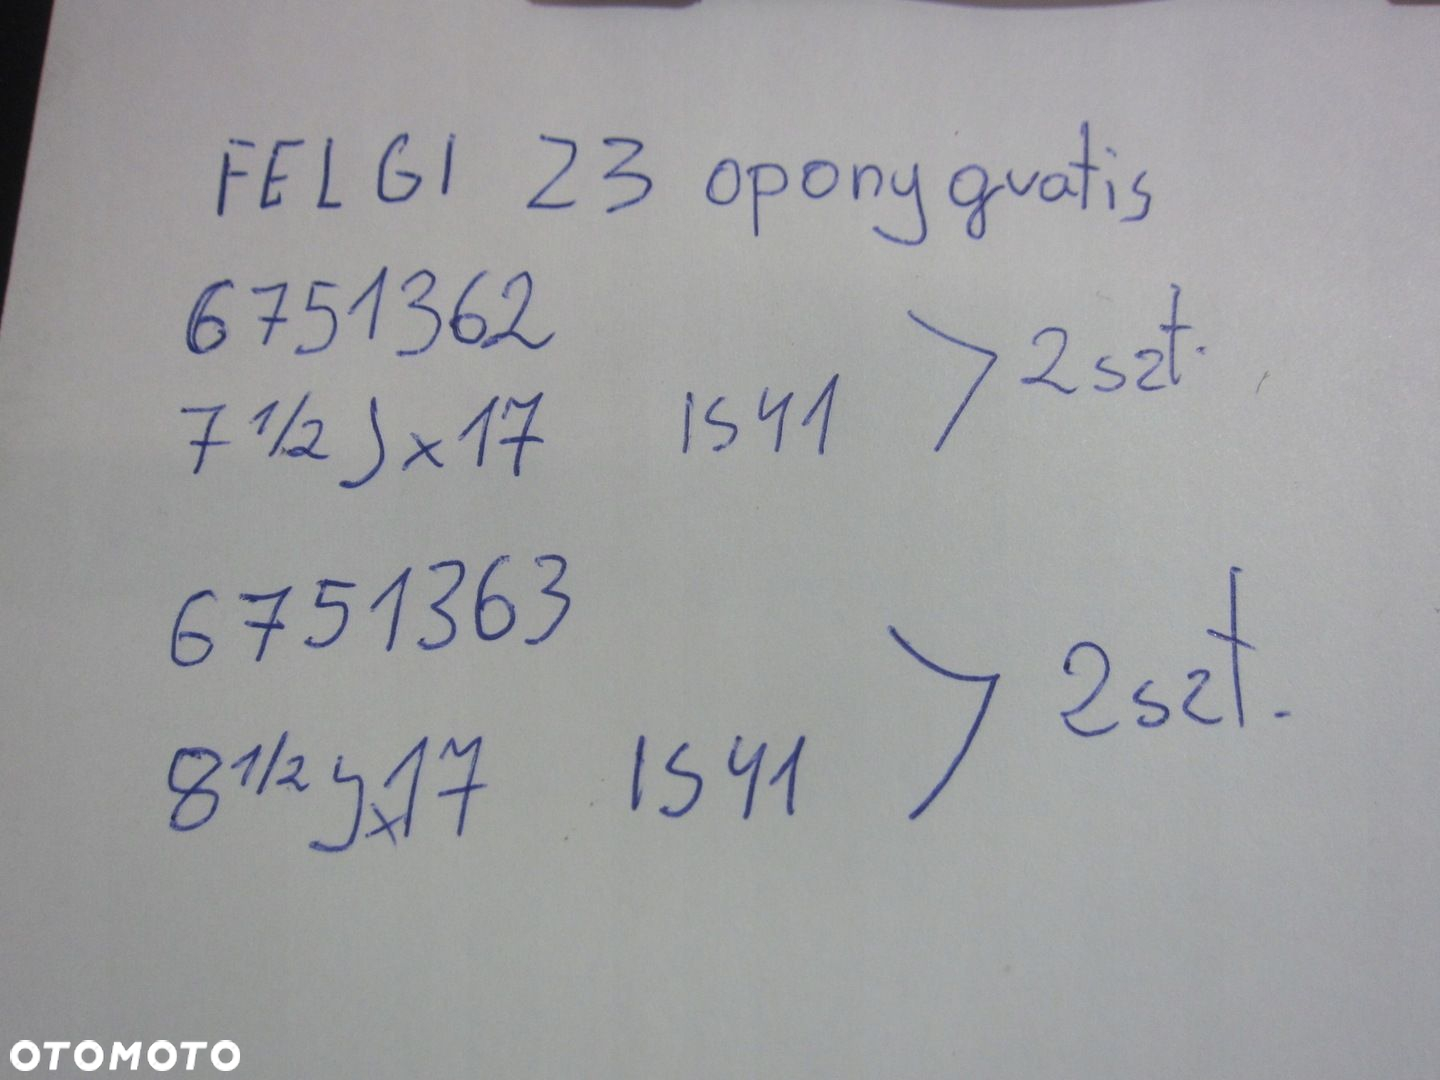 FELGI Z3 opony gratis
6751362
7 1/2 J x 17 IS 41 > 2 szt.
6751363
8 1/2 J x 17 IS 41 > 2 szt.
OTOMOTO